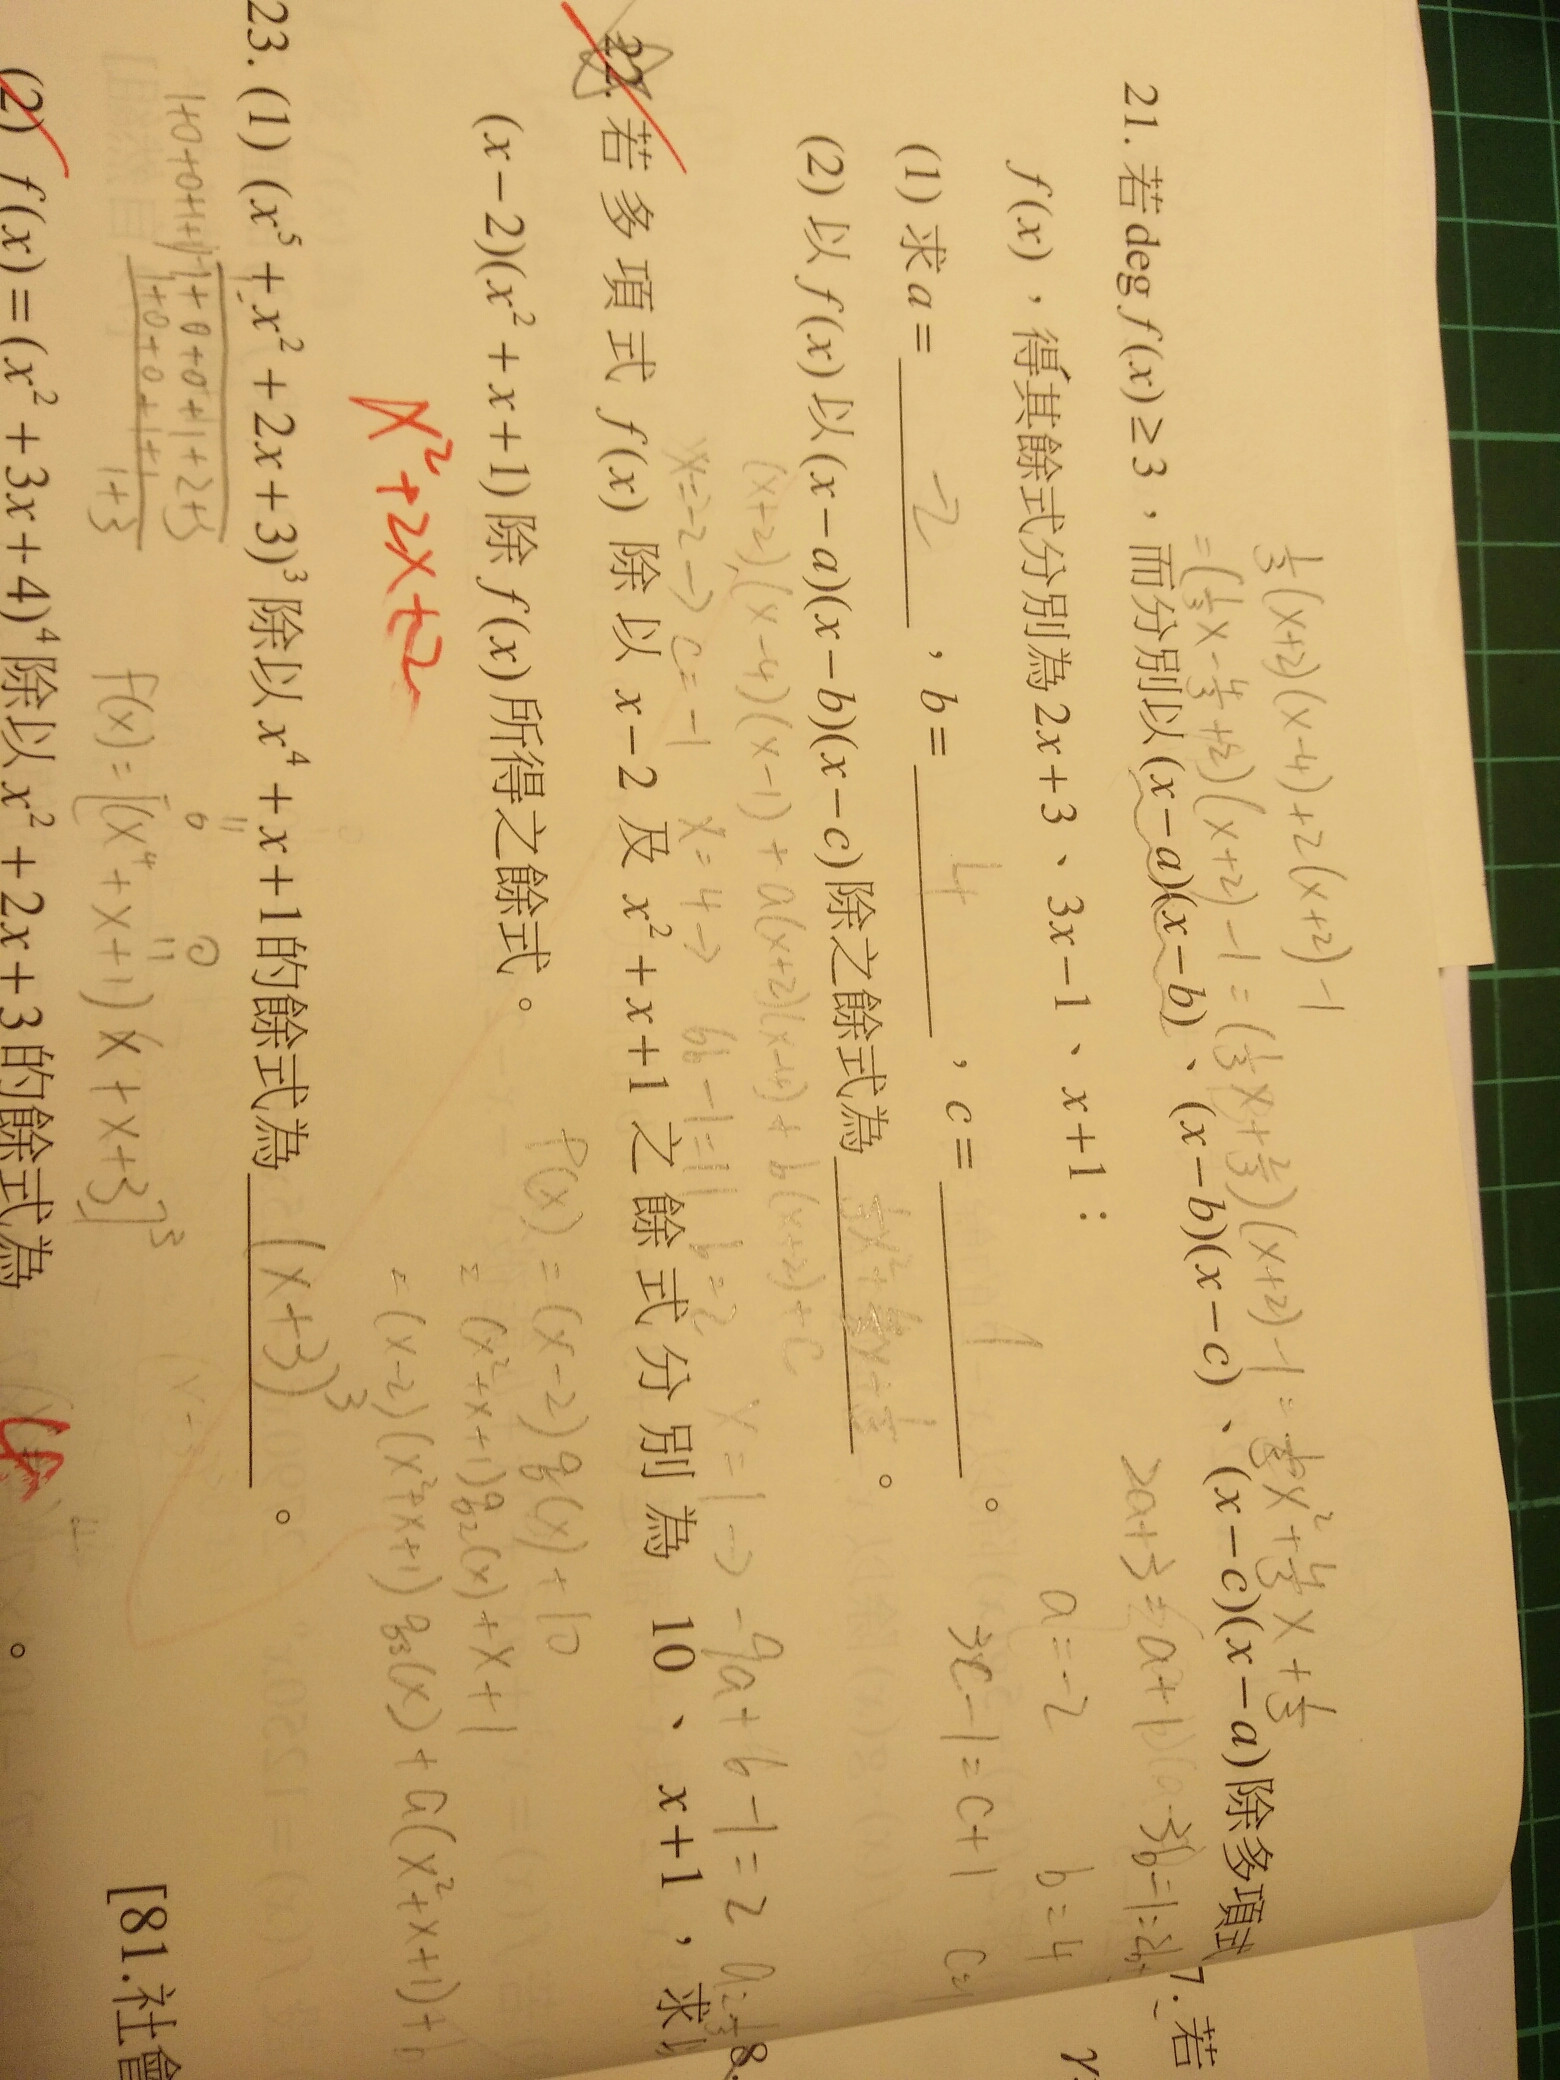 1/3(x+2)(x-4)+2(x+2)-1
=(1/3x-4/3+2)(x+2)-1=(1/3x+2/3)(x+2)-1=1/3x²+4/3x+1/3
21. 若deg f(x)≥3,而分別以(x-a)(x-b)、(x-b)(x-c)、(x-c)(x-a)除多項式
f(x),得其餘式分別為2x+3、3x-1、x+1:
2a+3=a+1
3b-1=2b+
a=-2 b=4
(1) 求a= -2 ,b= 4 ,c= 1 。
3c-1=c+1
(2) 以f(x)以(x-a)(x-b)(x-c)除之餘式為 1/3x²+4/3x+1/3 。
(x+2)(x-4)(x-1)+a(x+2)(x-4)+b(x+2)+c
x=-2→c=-1 x=4→ 6b-1=11 b=2 x=1→-9a+6-1=2
22. 若多項式 f(x) 除以 x-2 及 x²+x+1 之餘式分別為 10、x+1,求以
(x-2)(x²+x+1)除 f(x)所得之餘式。
f(x)=(x-2)g(x)+10
=(x²+x+1)g₂(x)+x+1
=(x-2)(x²+x+1)g₃(x)+a(x²+x+1)+b
x²+2x+2
23. (1) (x⁵+x²+2x+3)³除以x⁴+x+1的餘式為 (x+3)³ 。
1+0+0+1+1 1+0+0+1+2+3
1+0+0+1+1
1+3
f(x)=[(x⁴+x+1)x+x+3]³
(2) f(x)=(x²+3x+4)⁴除以x²+2x+3的餘式為 。
[81.社會
7. 若
8.